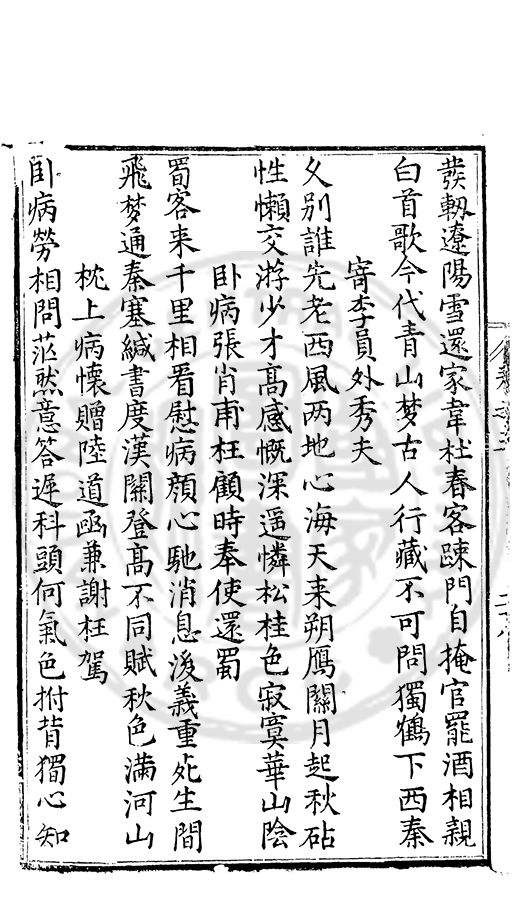 發軔遼陽雪還家韋杜春客踈門自掩官罷酒相親
白首歌今代青山梦古人行藏不可問獨鶴下西秦
寄李員外秀夫
久别誰先老西風两地心海天来朔鴈關月起秋砧
性懶交游少才高感慨深遥憐松桂色寂寞華山陰
卧病張肖甫枉顧時奉使還蜀
蜀客来千里相看慰病顔心馳消息後義重死生間
飛梦通秦塞緘書度漢關登高不同賦秋色滿河山
枕上病懷贈陸道函兼謝枉駕
卧病勞相問茫然意答遲科頭何氣色拊背獨心知